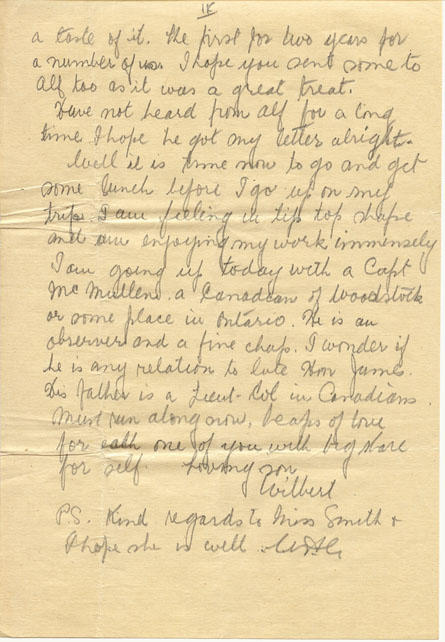 a taste of it. The first for two years for
a number of us. I hope you sent some to
Alf too as it was a great treat.
Have not heard from Alf for a long
time. I hope he got my letter alright.
Well it is time now to go and get
some lunch before I go up on my
trip. I am feeling in tip top shape
and am enjoying my work immensely
I am going up today with a Capt
McMullen. a Canadian of Woodstock
or some place in Ontario. He is an
observer and a fine chap. I wonder if
he is any relation to late Hon James.
His father is a Lieut-Col in Canadians.
Must run along now, heaps of love
for each one of you with big share
for self. Loving son
Wilbert
P.S. Kind regards to Miss Smith +
I hope she is well.